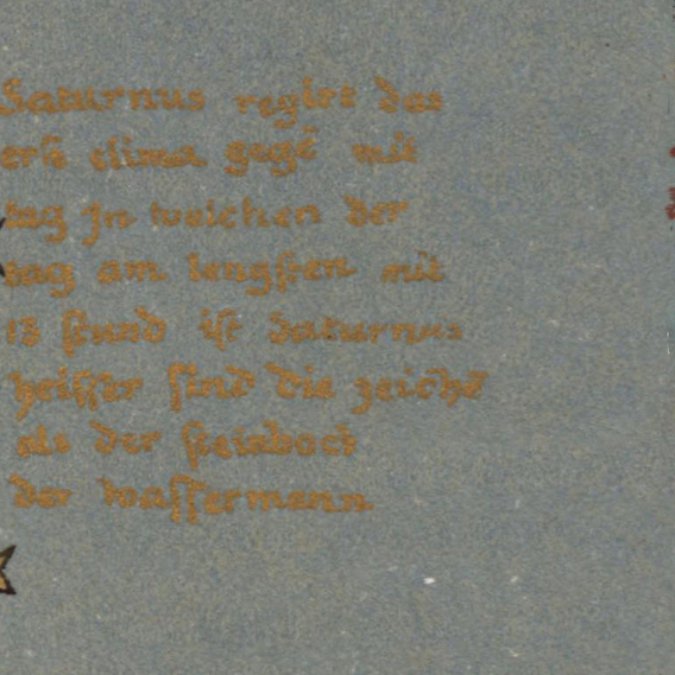 Saturnus regirt das
erst clima gegē mit
tag Jn welchen der
tag am lengsten mit
13 stund ist Saturnus
heisser sind die zeichē
als der steinbock
der wassermann